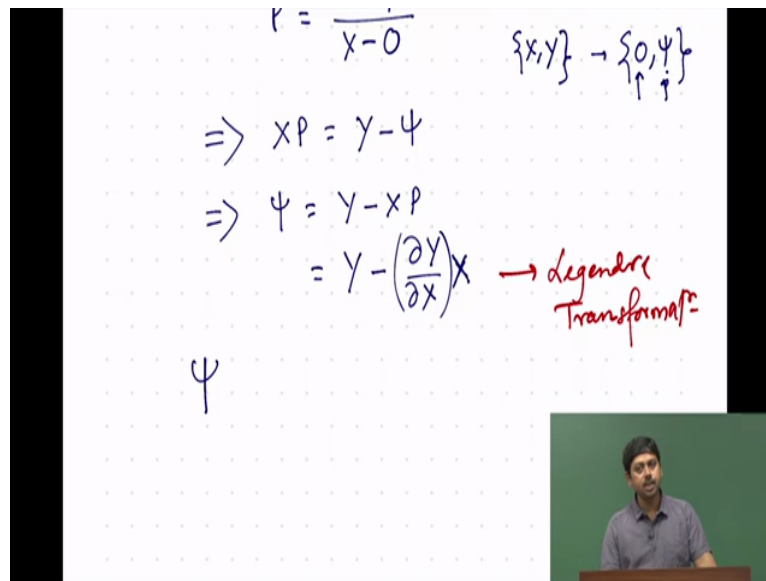 P =
X-0
{X,Y} → {0,ψ}
=> XP = Y-ψ
=> ψ = Y-XP
= Y-(∂Y/∂X)X → Legendre
Transformatn
ψ